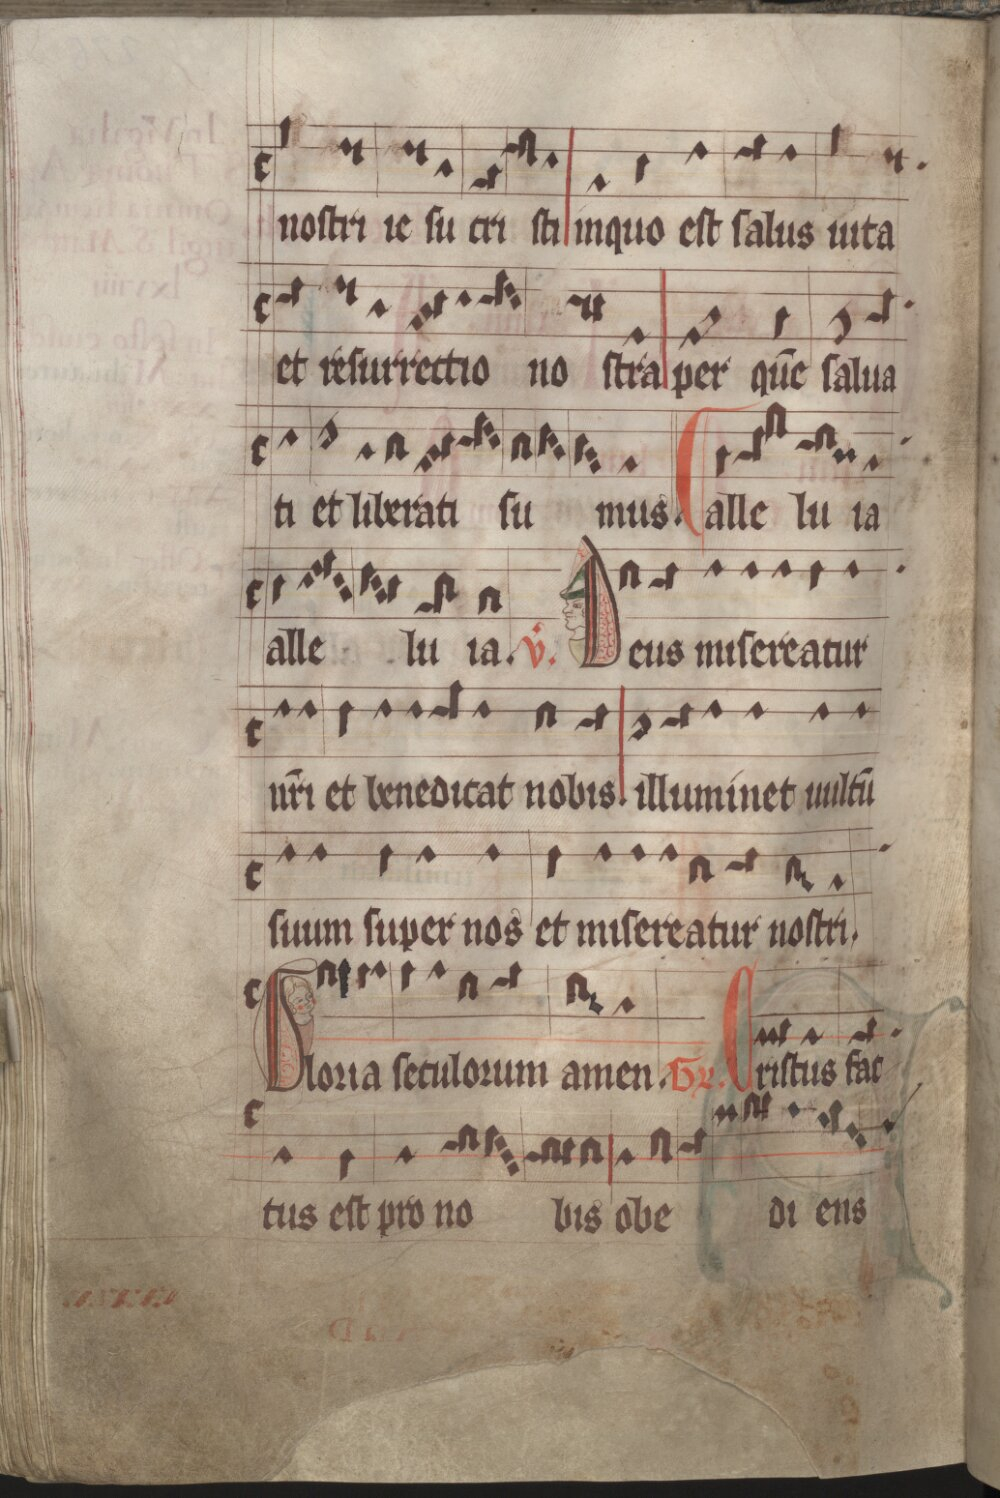 nostri ie su cri sti inquo est salus uita
et resurrectio no stra per quē salua
ti et liberati su mus. alle lu ia
alle lu ia. v̄. Deus misereatur
nr̄i et benedicat nobis. illuminet uultū
suum super nos et misereatur nostri.
Gloria seculorum amen. Gr. Cristus fac
tus est pro no bis obe di ens